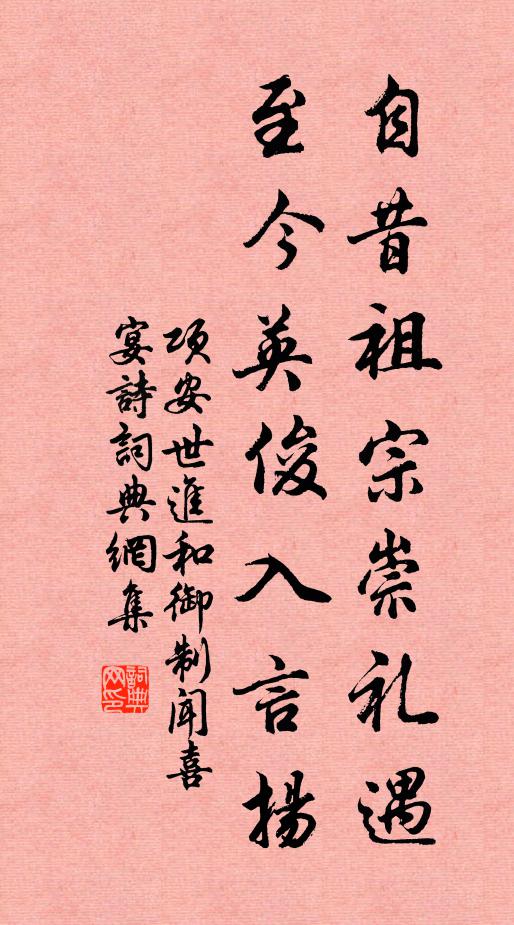 自昔祖宗崇礼遇
至今英俊入言揚
项安世進和御制闻喜
宴詩詞典網集
詞典
网印